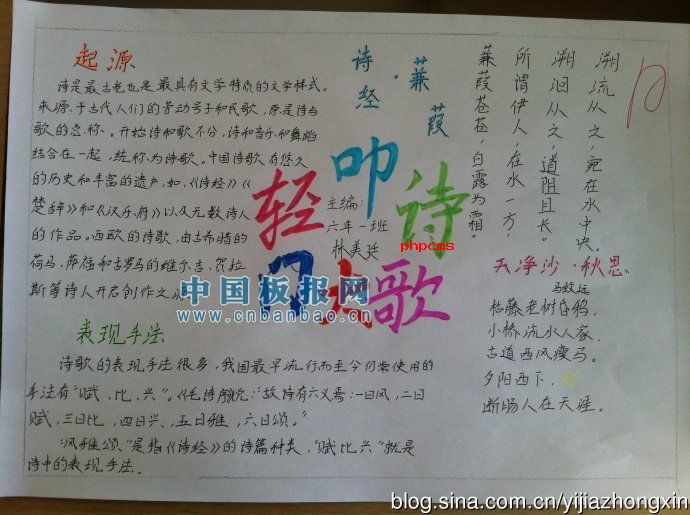 起源
诗是最古老也是最具有文学特质的文学样式。
来源于古代人们的劳动号子和民歌，原是诗与
歌的总称。开始诗和歌不分，诗和音乐和舞蹈
结合在一起，统称为诗歌。中国诗歌有悠久
的历史和丰富的遗产，如，《诗经》《
楚辞》和《汉乐府》以及无数诗人
的作品。西欧的诗歌，由古希腊的
荷马、萨福和古罗马的维尔吉、贺拉
斯等诗人开启创作之
表现手法
诗歌的表现手法很多，我国最早流行而至今仍常使用的
手法有“赋、比、兴”。《毛诗序》说：“故诗有六义焉：一曰风，二曰
赋，三曰比，四曰兴，五曰雅，六曰颂。”
“风雅颂”是指《诗经》的诗篇种类，“赋比兴”就是
诗中的表现手法。
轻叩诗
歌
主编：
六年一班
林美廷
phpcms
中国板报网
www.cnbanbao.cn
诗经·蒹葭
蒹葭苍苍，白露为霜。
所谓伊人，在水一方，
溯洄从之，道阻且长。
溯流从之，宛在水中央。
天净沙·秋思
马致远
枯藤老树昏鸦，
小桥流水人家，
古道西风瘦马。
夕阳西下，
断肠人在天涯。
blog.sina.com.cn/yijiazhongxin